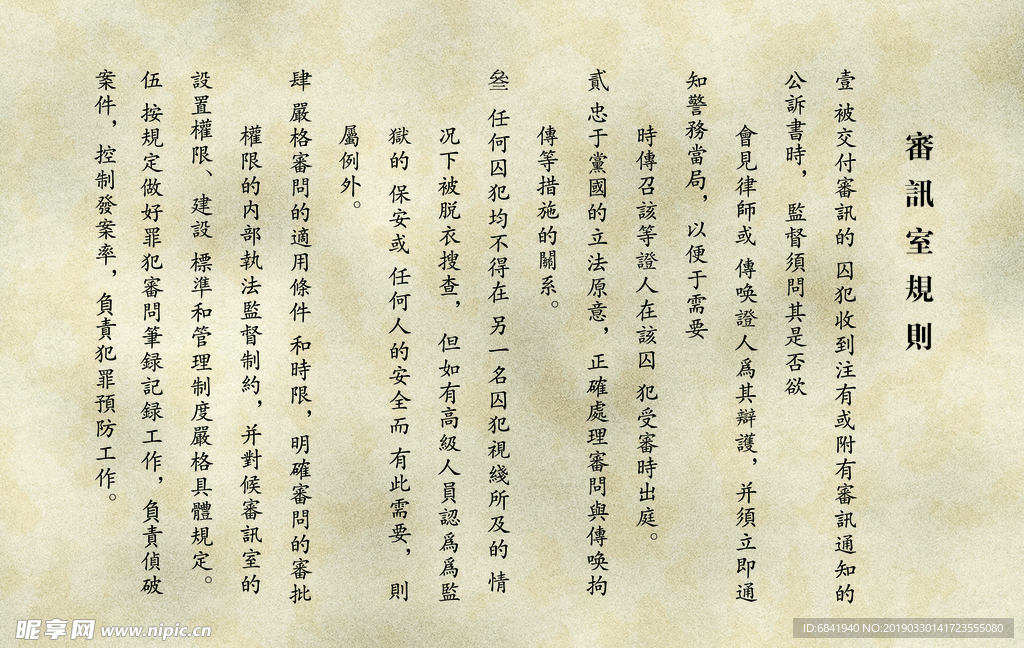 審訊室規則
壹 被交付審訊的 囚犯收到注有或附有審訊通知的
公訴書時， 監督須問其是否欲
會見律師或 傳唤證人爲其辯護， 并須立即通
知警務當局， 以便于需要
時傳召該等證人在該囚 犯受審時出庭。
貳 忠于黨國的立法原意， 正確處理審問與傳唤拘
傳等措施的關系。
叄 任何囚犯均不得在 另一名囚犯視綫所及的 情
况下被脱衣搜查， 但如有高級人員認爲爲監
獄的 保安或 任何人的安全而 有此需要， 則
屬例外。
肆 嚴格審問的適用條件 和時限， 明確審問的審批
權限的内部執法監督制約， 并對候審訊室的
設置權限、建設 標準和管理制度嚴格具體規定。
伍 按規定做好罪犯審問筆録記録工作， 負責偵破
案件， 控制發案率， 負責犯罪預防工作。
昵享网 www.nipic.cn
ID:6841940 NO:20190330141723555080